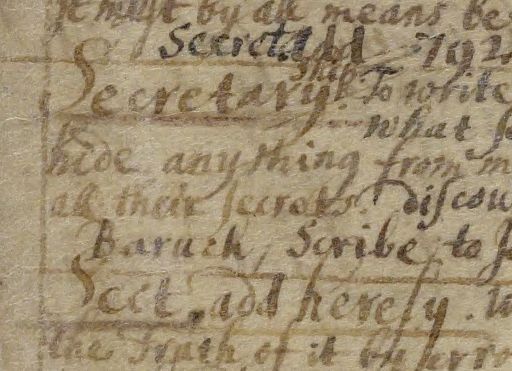 It must by all means be
Secret add 792
ship
Secretary. To write
What
hide any thing from
all their secrets. Discou
Baruch, Scribe to Je
Sect, add heresy.
the Truth of it by erro